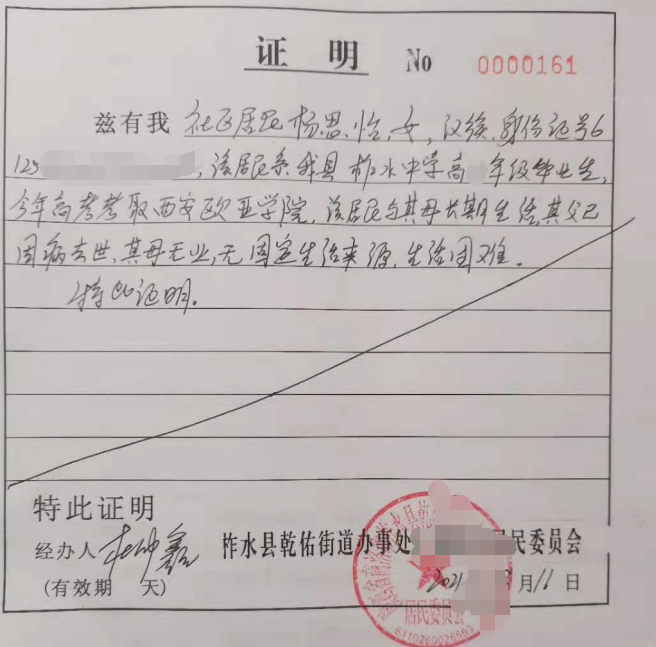 证 明 No 0000161
兹有我 社区居民杨思怡,女,汉族,身份证号6
125 ,该居民系我县柞水中学高 年级毕业生,
今年高考考取西安欧亚学院,该居民与其母长期生活,其父已
因病去世,其母无业,无固定生活来源,生活困难。
特此证明.
特此证明
经办人
柞水县乾佑街道办事处 居民委员会
(有效期 天) 2021 月11日
居民委员会
6110260026593